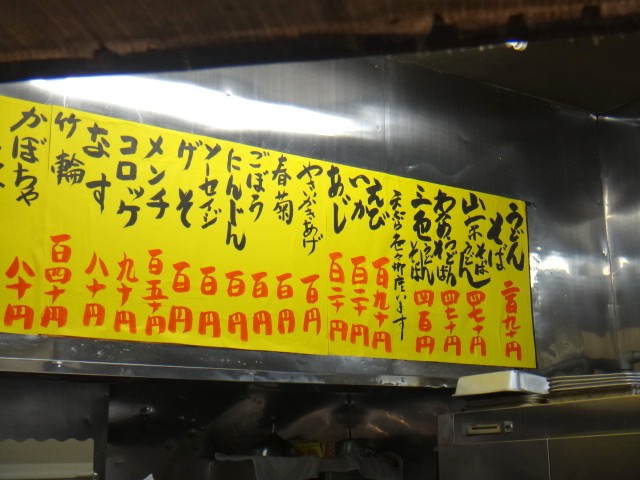 うどん
そば 二百九十円
山菜そば
うどん 四七十円
わかめうどん
そば 四七十円
三色うどん
そば 四百円
天ぷら色々御座います
えび 百九十円
いか 百二十円
あじ 百二十円
やさいかきあげ 百円
春菊 百円
ごぼう 百円
にんじん 百円
ソーセイジ 百円
ゲソ 百円
メンチ 百五十円
コロッケ 九十円
なす 八十円
竹輪 百四十円
かぼちゃ 八十円